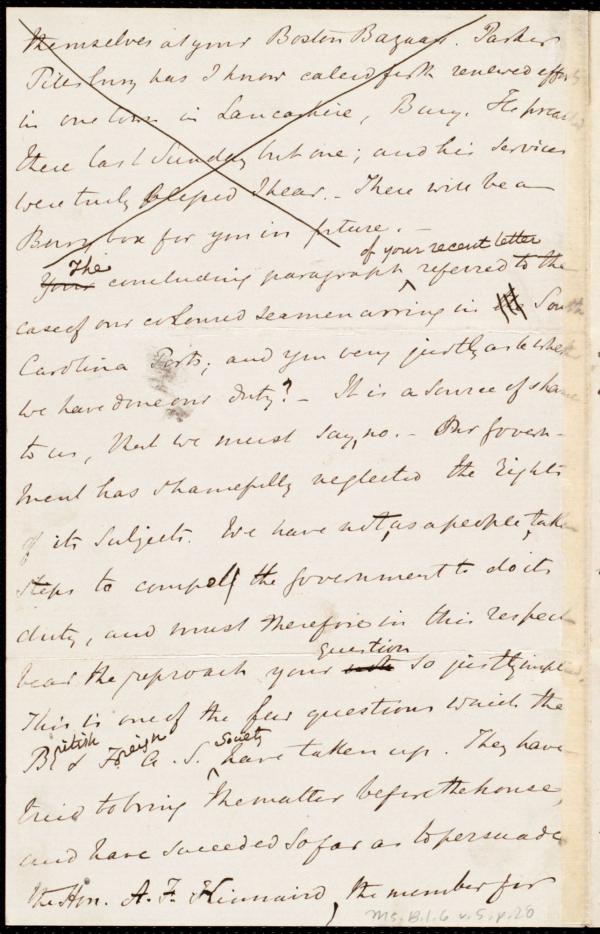 themselves at your Boston Bazaar. Parker
Pillsbury has I know called forth renewed efforts
in one town in Lancashire, Bury. He preached
there last Sunday but one; and his services
were truly blessed I hear. - There will be a
Bury box for you in future. -
of your recent letter
Your The concluding paragraph ^ referred to the
case of our coloured seamen arriving in South
Carolina Ports; and you very justly ask whether
we have done our duty? - It is a source of shame
to us, that we must say, no. - Our Govern-
ment has shamefully neglected the rights
of its subjects. We have not, as a people, taken
steps to compell the government to do its
duty, and must therefore in this respect
bear the reproach your question so justly implies.
This is one of the few questions which the
British & Foreign A. S. Society ^ have taken up. They have
tried to bring the matter before the house,
and have succeeded so far as to persuade
the Hon. A. F. Kinnaird, the member for
Ms. B. 1. 6 v. 5, p. 20